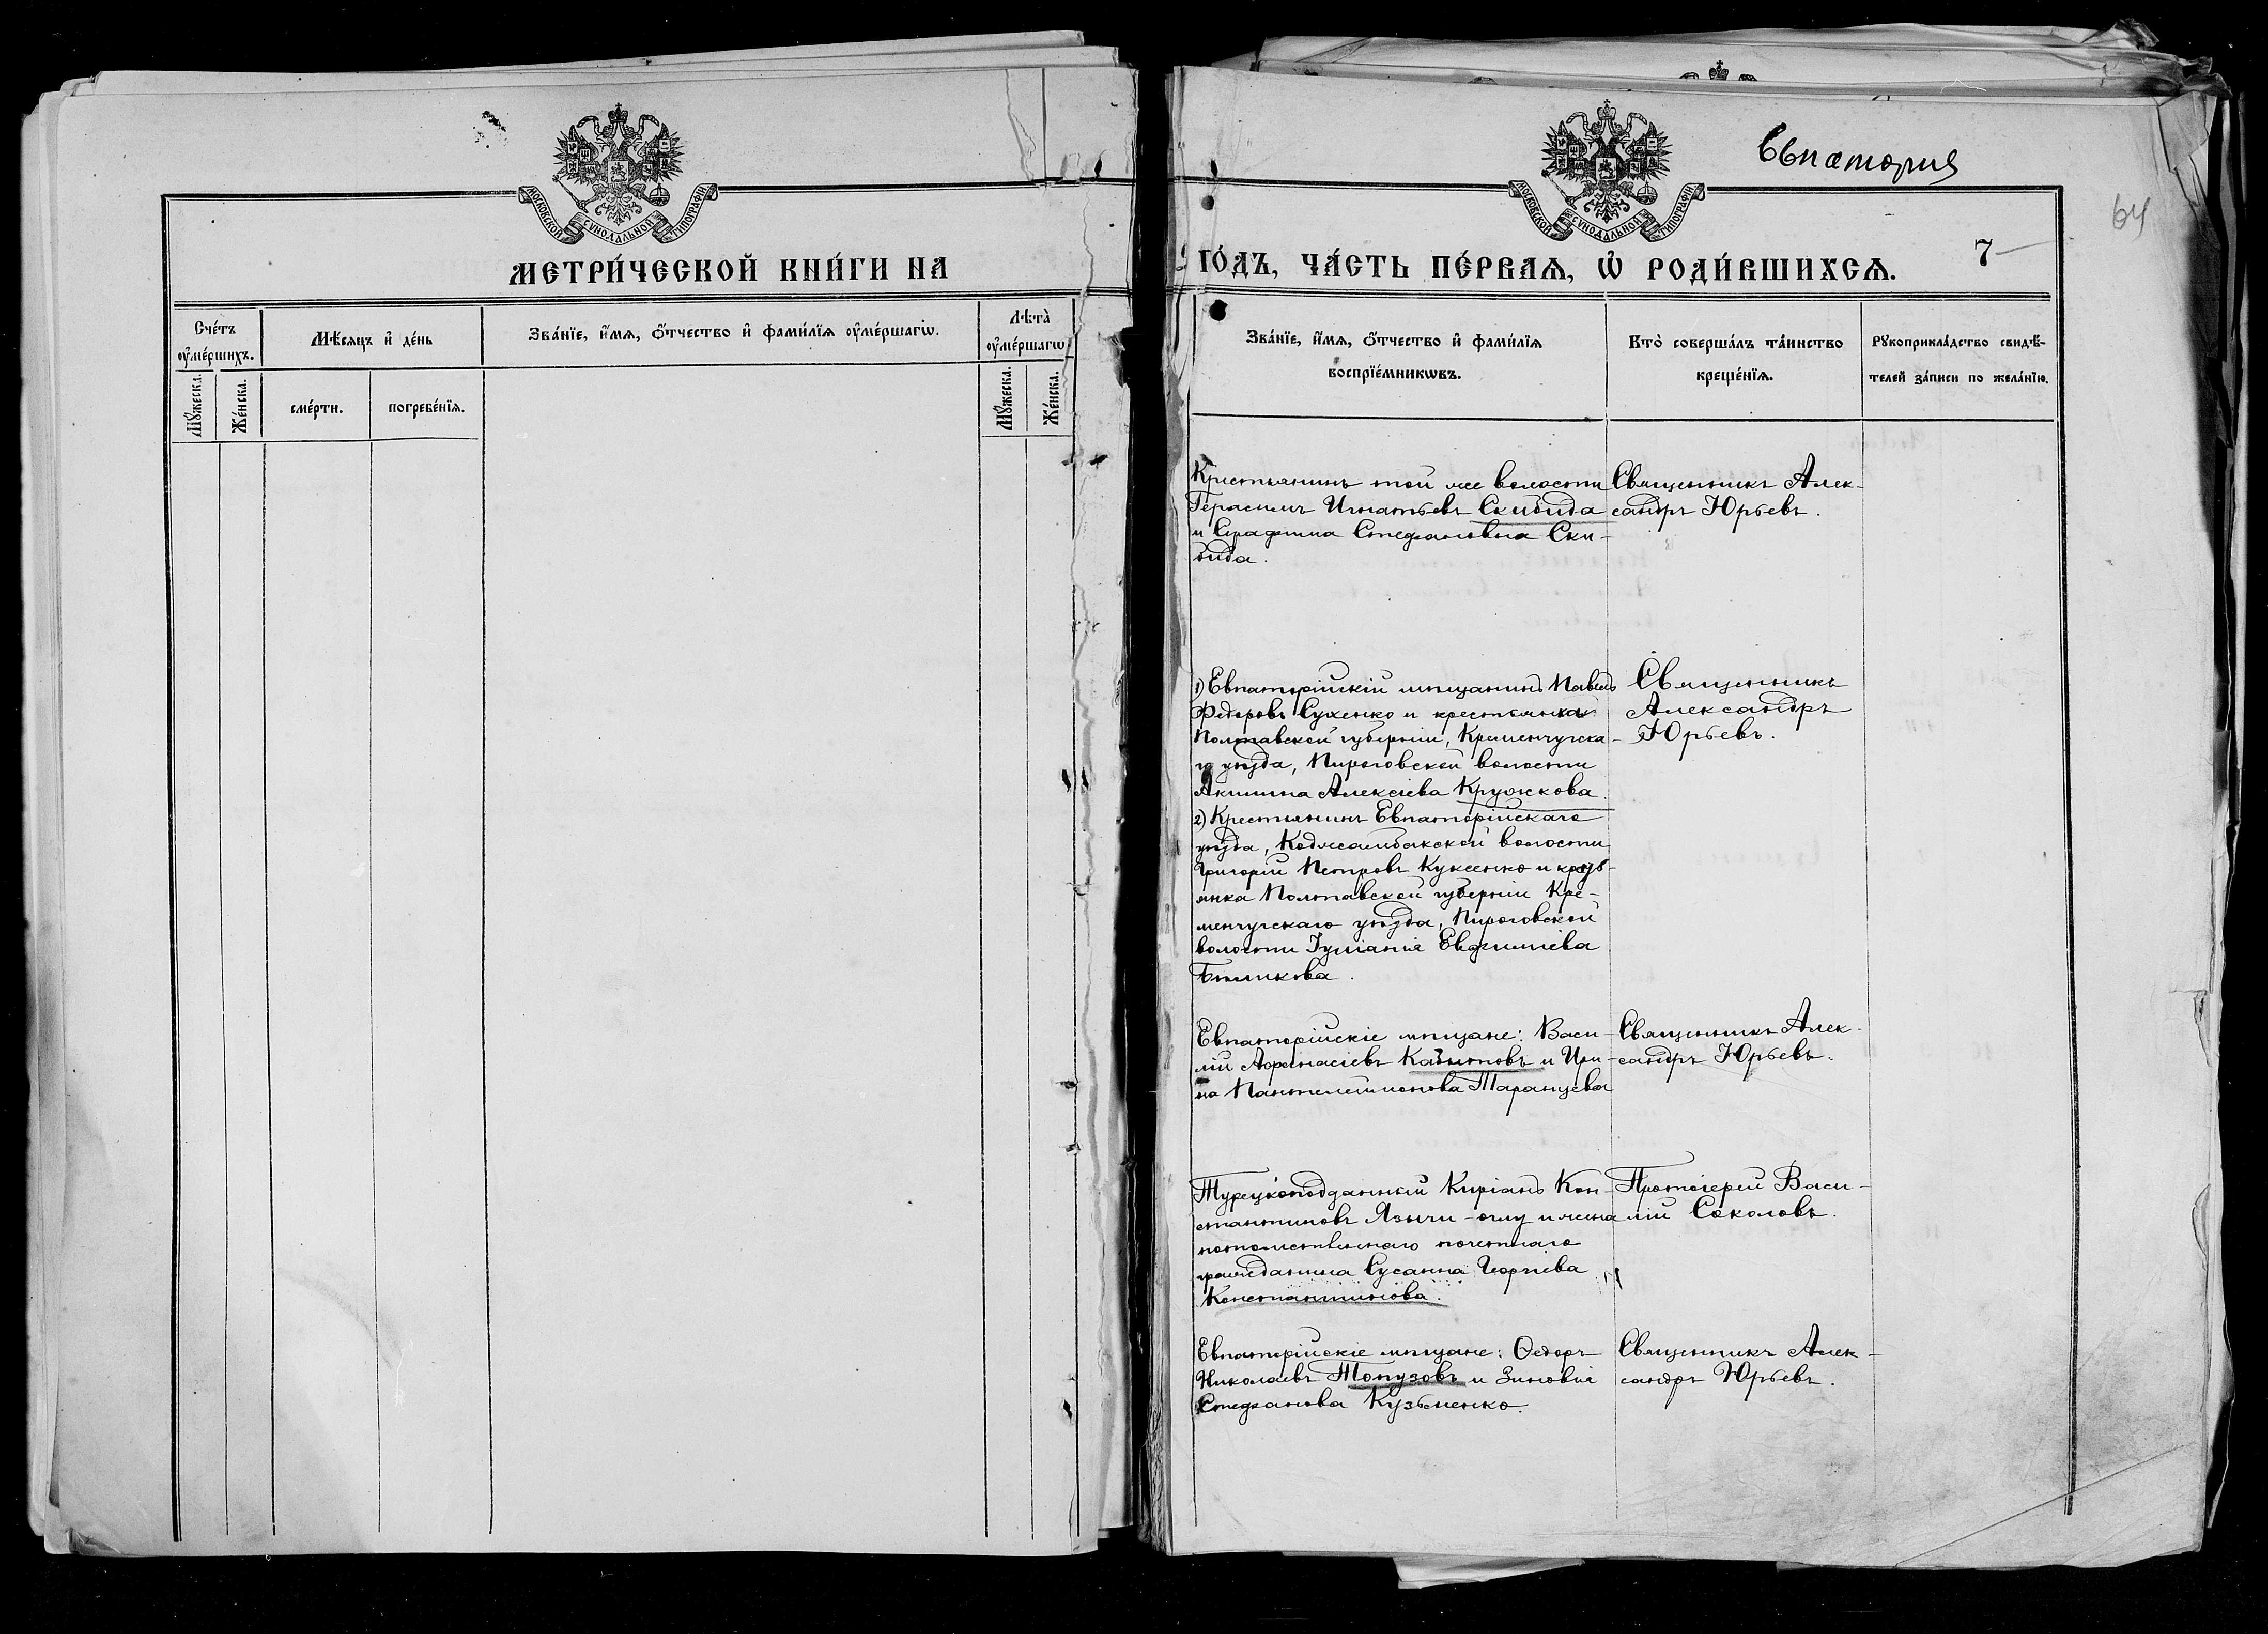 МОСКОВСКОЙ СѴНОДАЛЬНОЙ ТИПОГРАФІИ
МЕТРИ́ЧЕСКОЙ КНИ́ГИ НА
Сче́тъ оу҆ме́ршихъ.
Мѣ́сяцъ и҆ де́нь
Зва́нїе, и҆́мѧ, ѻ҆́тчество и҆ фами́лїѧ оу҆ме́ршагѡ.
Лѣта̀ оу҆ме́ршагѡ
Мꙋ́жеска.
Же́нска.
сме́рти.
погребе́нїѧ.
Мꙋ́жеска.
Же́нска.
Евпаторія
64
МОСКОВСКОЙ СѴНОДАЛЬНОЙ ТИПОГРАФІИ
7
ГО́ДЪ, ЧА́СТЬ ПЕ́РВАѦ, Ѡ҆ РОДИ́ВШИХСѦ.
Зва́нїе, и҆́мѧ, ѻ҆́тчество и҆ фами́лїѧ
воспрїе́мникѡвъ.
Кто̀ соверша́лъ та́инство
креще́нїѧ.
Рꙋкоприкла́дство свидѣ́-
телей за́писи по жела́нїю.
Крестьянинъ той же волости
Герасимъ Игнатьевъ Скибида
и Серафима Стефановна Ски-
бида.
Священникъ Алек-
сандръ Юрьевъ.
1) Евпаторійскій мѣщанинъ Павелъ
Федоровъ Сухенко и крестьянка
Полтавской губерніи, Кременчугска-
го уѣзда, Пироговской волости
Акилина Алексіева Кружкова.
2) Крестьянинъ Евпаторійскаго
уѣзда, Коджамбакской волости
Григорій Петровъ Куксенко и кресть-
янка Полтавской губерніи Кре-
менчугскаго уѣзда, Пироговской
волости Іуліанія Евфиміева
Бѣликова.
Священникъ
Александръ
Юрьевъ.
Евпаторійскіе мѣщане: Васи-
лій Афанасіевъ Казытовъ и Ири-
на Пантелеимонова Таранцева
Священникъ Алек-
сандръ Юрьевъ.
Турецкоподданный Киріакъ Кон-
стантиновъ Язычи-оглу и жена
потомственнаго почетнаго
гражданина Сусанна Георгіева
Константинова.
Протоіерей Васи-
лій Соколовъ.
Евпаторійскіе мѣщане: Ѳедоръ
Николаевъ Топузовъ и Зиновія
Стефанова Кузьменко.
Священникъ Алек-
сандръ Юрьевъ.